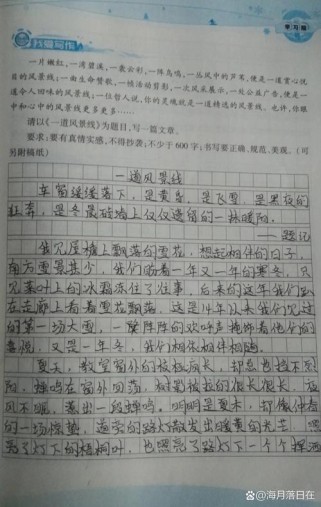 学习报
我爱写作
一片嫩红,一湾碧溪,一朵云彩,一阵鸟鸣,一丛风中的芦苇,便是一道赏心悦
目的风景线;一曲生命赞歌,一场活动剪影,一次风采展示,一段公益广告,便是一
道令人回味的风景线;一位哲人说,你的灵魂就是一道精选的风景线。也许,你眼
中和心中的风景线更多更多……
请以《一道风景线》为题目,写一篇文章。
要求:要有真情实感,不得抄袭;不少于600字;书写要正确、规范、美观。(可
另附稿纸)
一道风景线
车窗缓缓落下,是黄昏,是飞雪,是黑夜的
狂奔,是冬晨砖墙上仅仅遗留的一抹暖阳。
——题记
俯见屋檐上飘落的雪花,想起相伴的日子,
南方雪景甚少,我们盼着一年又一年的寒冬,只
见落叶上的冰霜冻住了往事,后来的这年我们趴
在走廊上看着雪花飘落,这是14年以来我们见过
的第一场大雪,一阵阵的欢呼声掩饰着他们的
喜悦,又是一年冬,我们相依相伴相遇。
夏天,教室窗外的枝桠疯长,却总也挡不住烈
阳,蝉鸣在窗外回荡,树影被拉的很长很长,夜
风不眠,惹出一段蝉鸣。明明是夏末,却像仲春
的一场惊梦,远旁的路灯散发出暖黄的光芒,照
亮了灯下的梧桐叶,也照亮了路灯下一个个挥洒
@海月落日在